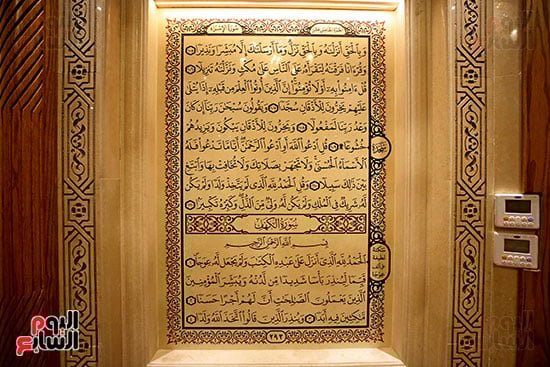 الجزء الخامس عشر
سورة الإسراء
وَبِٱلْحَقِّ أَنزَلْنَٰهُ وَبِٱلْحَقِّ نَزَلَ وَمَآ أَرْسَلْنَٰكَ إِلَّا مُبَشِّرًا وَنَذِيرًا ١٠٥
وَقُرْءَانًا فَرَقْنَٰهُ لِتَقْرَأَهُۥ عَلَى ٱلنَّاسِ عَلَىٰ مُكْثٍ وَنَزَّلْنَٰهُ تَنزِيلًا ١٠٦
قُلْ ءَامِنُوا۟ بِهِۦٓ أَوْ لَا تُؤْمِنُوٓا۟ إِنَّ ٱلَّذِينَ أُوتُوا۟ ٱلْعِلْمَ مِن قَبْلِهِۦٓ إِذَا يُتْلَىٰ
عَلَيْهِمْ يَخِرُّونَ لِلْأَذْقَانِ سُجَّدًا ١٠٧ وَيَقُولُونَ سُبْحَٰنَ رَبِّنَآ إِن كَانَ
وَعْدُ رَبِّنَا لَمَفْعُولًا ١٠٨ وَيَخِرُّونَ لِلْأَذْقَانِ يَبْكُونَ وَيَزِيدُهُمْ
خُشُوعًا ۩ ١٠٩ قُلِ ٱدْعُوا۟ ٱللَّهَ أَوِ ٱدْعُوا۟ ٱلرَّحْمَٰنَ أَيًّا مَّا تَدْعُوا۟ فَلَهُ
ٱلْأَسْمَآءُ ٱلْحُسْنَىٰ وَلَا تَجْهَرْ بِصَلَاتِكَ وَلَا تُخَافِتْ بِهَا وَٱبْتَغِ
بَيْنَ ذَٰلِكَ سَبِيلًا ١١٠ وَقُلِ ٱلْحَمْدُ لِلَّهِ ٱلَّذِى لَمْ يَتَّخِذْ وَلَدًا وَلَمْ يَكُن
لَّهُۥ شَرِيكٌ فِى ٱلْمُلْكِ وَلَمْ يَكُن لَّهُۥ وَلِىٌّ مِّنَ ٱلذُّلِّ وَكَبِّرْهُ تَكْبِيرًۢا ١١١
سُورَةُ الكَهْفِ
بِسْمِ ٱللَّهِ ٱلرَّحْمَٰنِ ٱلرَّحِيمِ
ٱلْحَمْدُ لِلَّهِ ٱلَّذِىٓ أَنزَلَ عَلَىٰ عَبْدِهِ ٱلْكِتَٰبَ وَلَمْ يَجْعَل لَّهُۥ عِوَجَا ١
قَيِّمًا لِّيُنذِرَ بَأْسًا شَدِيدًا مِّن لَّدُنْهُ وَيُبَشِّرَ ٱلْمُؤْمِنِينَ
ٱلَّذِينَ يَعْمَلُونَ ٱلصَّٰلِحَٰتِ أَنَّ لَهُمْ أَجْرًا حَسَنًا ٢
مَّٰكِثِينَ فِيهِ أَبَدًا ٣ وَيُنذِرَ ٱلَّذِينَ قَالُوا۟ ٱتَّخَذَ ٱللَّهُ وَلَدًا ٤
٢٩٣
اليوم السابع